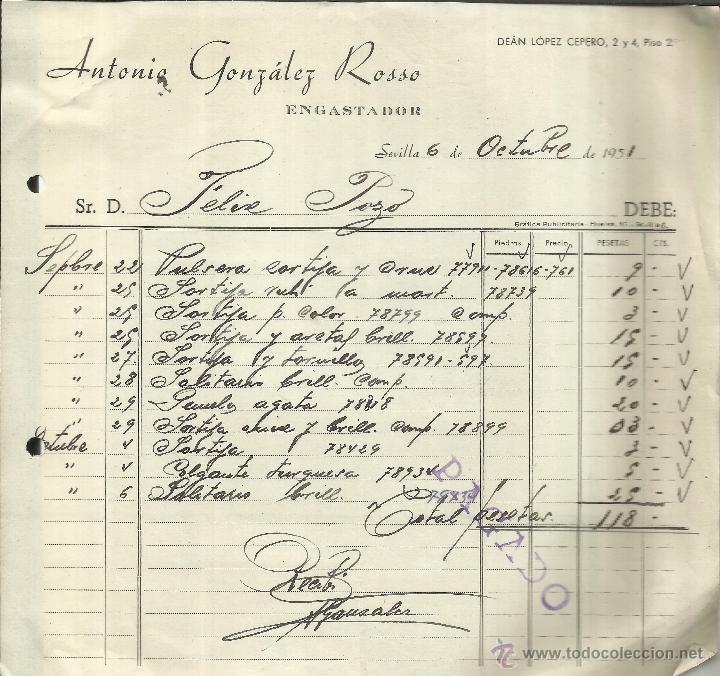 DEÁN LÓPEZ CEPERO, 2 y 4, Piso 2º
Antonio González Rosso
ENGASTADOR
Sevilla 6 de Octubre de 1951
Sr. D. Félix Pozo DEBE:
Gráfica Publicitaria
Piedras Precio PESETAS CTS.
Sepbre 22 Pulsera sortija y cruz 77911-78616-761 9 -
" 25 Sortija rubí a mart. 78739 10 -
" 25 Sortija p. color 78799 Comp. 3 -
" 25 Sortija y aretas brell. 78597 15 -
" 27 Sortija y tornillos 78591-597 15 -
" 28 Solitario brell. Comp. 10 -
" 29 Gemelos agata 20 -
" 29 Sortija y brell. Comp. 78899 03 -
Octubre 4 Sortija 78429 3 -
" 4 Colgante turquesa 78934 5 -
" 6 Solitario brell. 25 -
Total pesetas 118 -
PAGADO
Recibí
AGonzález
www.todocoleccion.net